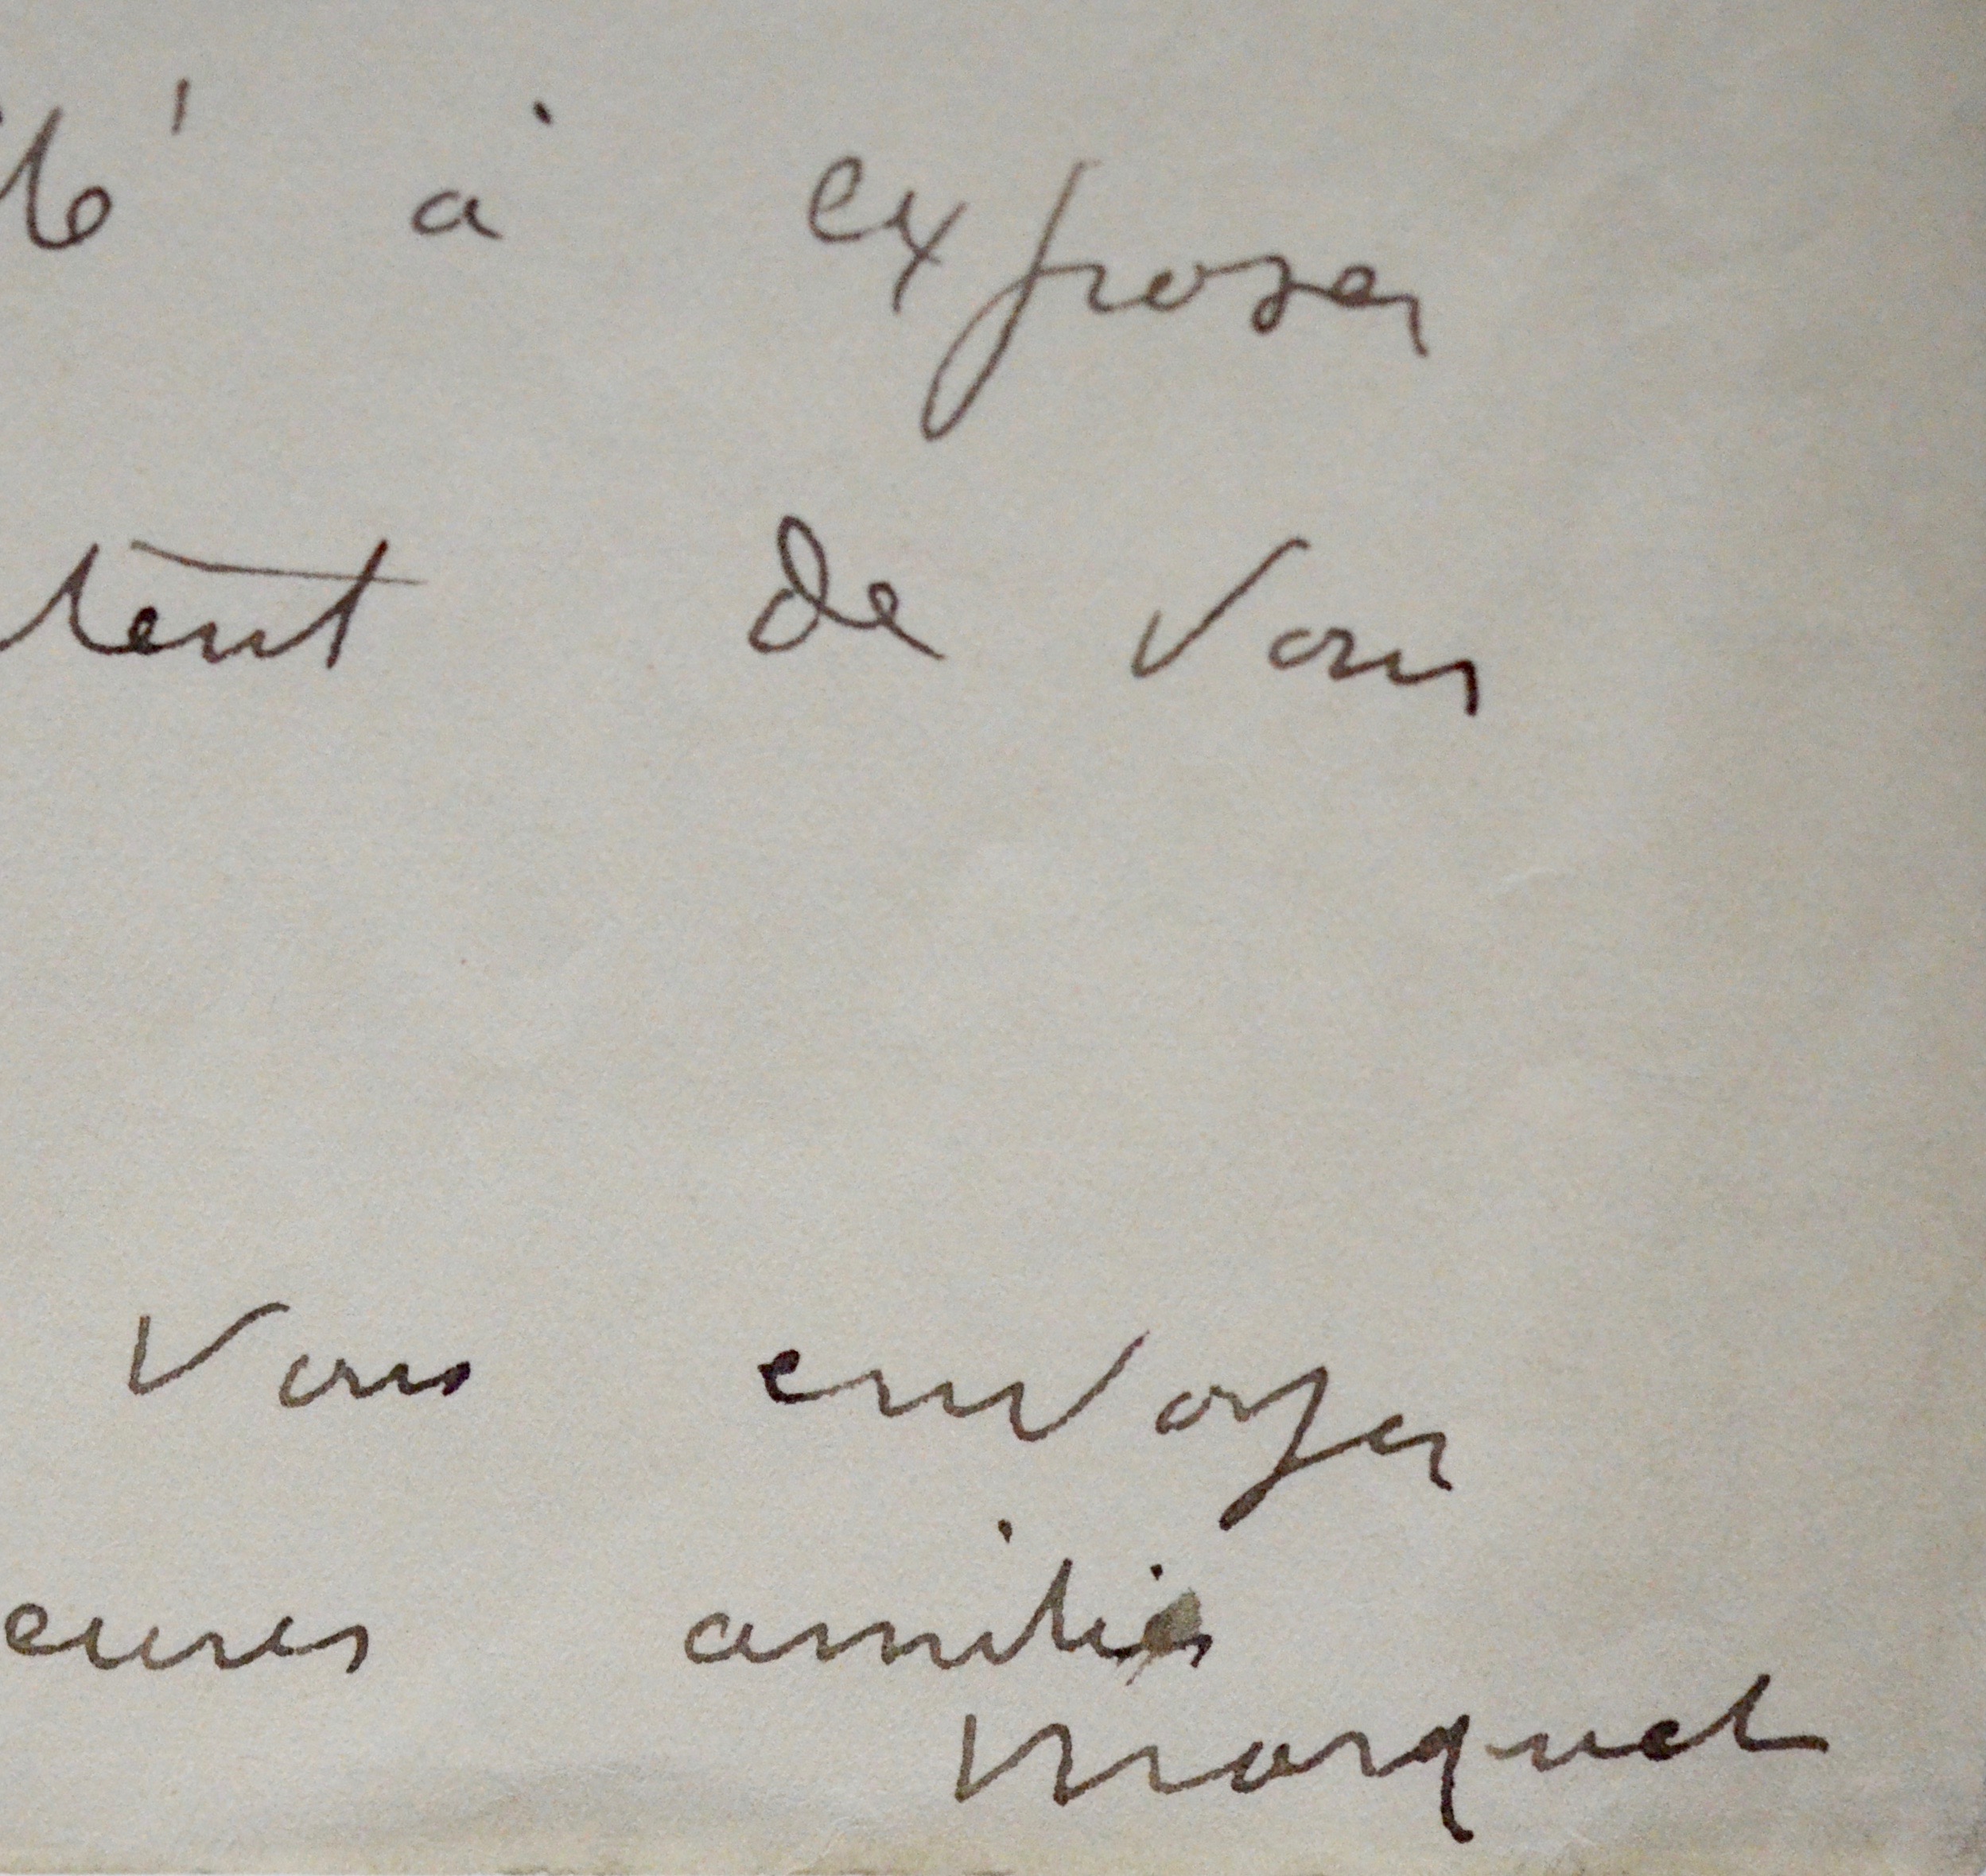 té à exposer
tent de vous
Vous envoyer
eures amitiés
Marquet